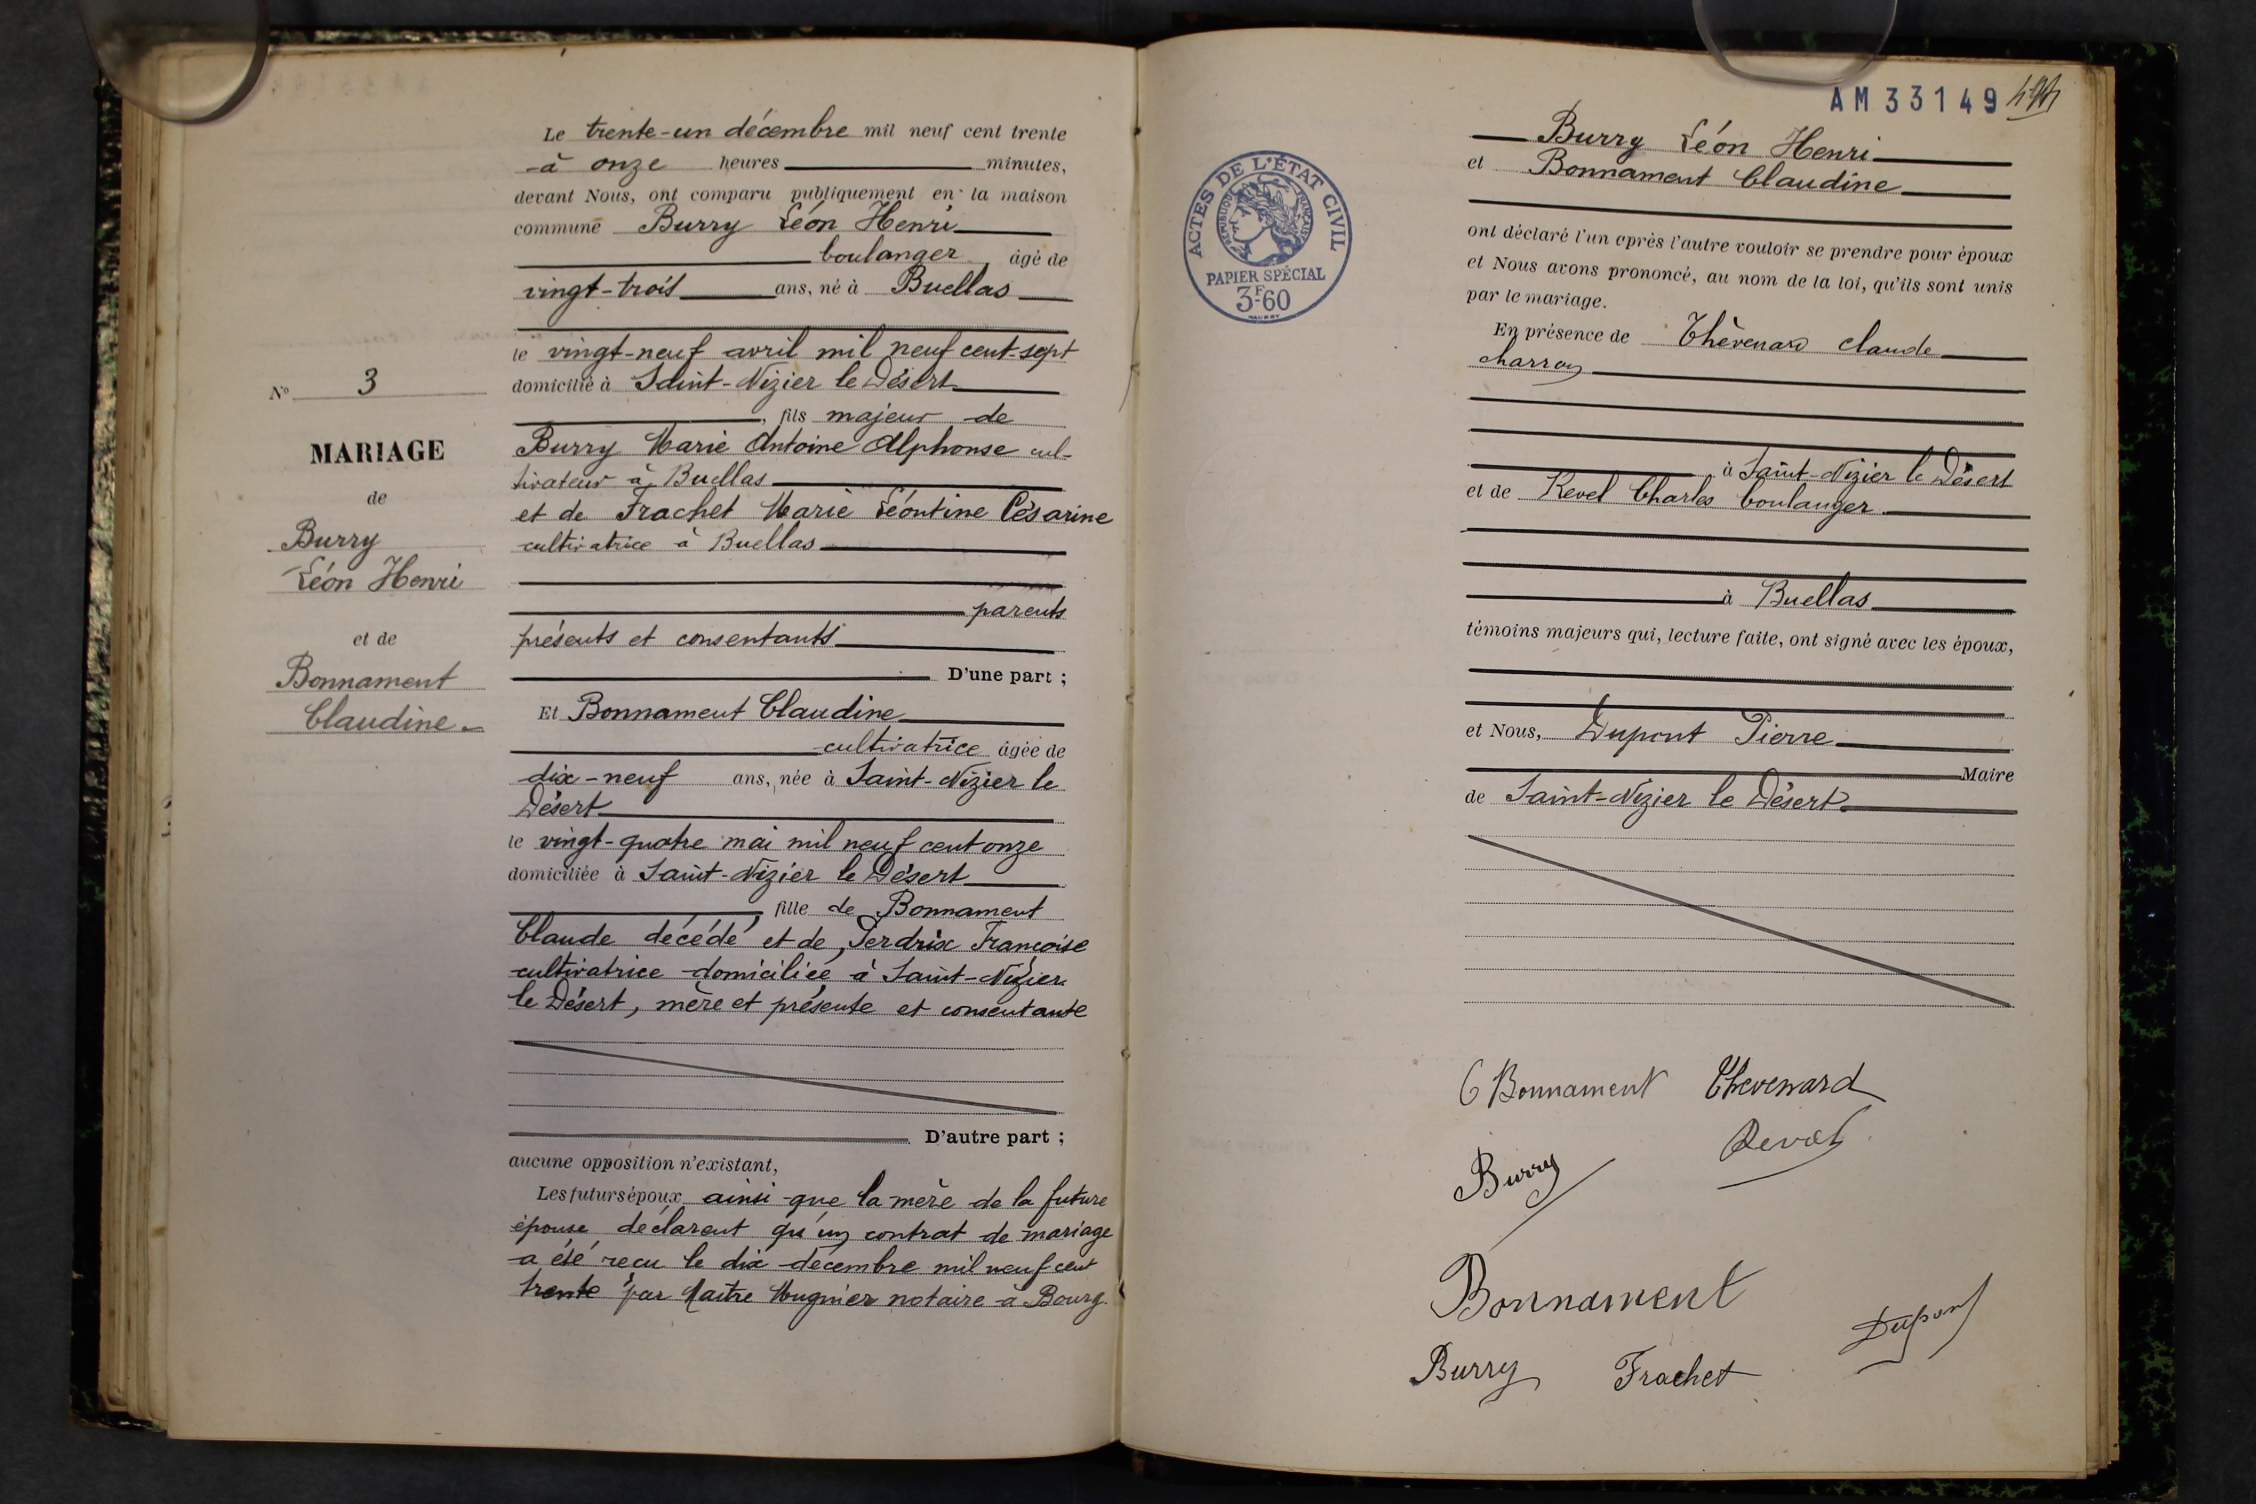 Le trente-un décembre mil neuf cent trente
-à onze heures minutes,
devant Nous, ont comparu publiquement en la maison
commune Burry Léon Henri
boulanger, âgé de
vingt-trois ans, né à Buellas
le vingt-neuf avril mil neuf cent sept
domicilié à Saint-Nizier le Désert
, fils majeur de
Burry Marie Antoine Alphonse cul-
tivateur à Buellas
et de Frachet Marie Léontine Césarine
cultivatrice à Buellas
parents
présents et consentants
D'une part ;
Et Bonnament Claudine
cultivatrice âgée de
dix-neuf ans, née à Saint-Nizier le
Désert
le vingt-quatre mai mil neuf cent onze
domiciliée à Saint-Nizier le Désert
, fille de Bonnament
Claude décédé et de Perdrix Françoise
cultivatrice domiciliée à Saint-Nizier
le Désert, mère et présente et consentante
D'autre part ;
aucune opposition n'existant,
Les futurs époux ainsi que la mère de la future
épouse déclarent qu'un contrat de mariage
a été reçu le dix décembre mil neuf cent
trente par Maître Mugnier notaire à Bourg.
N° 3
MARIAGE
de
Burry
Léon Henri
et de
Bonnament
Claudine
AM33149
Burry Léon Henri
et Bonnament Claudine
ont déclaré l'un après l'autre vouloir se prendre pour époux
et Nous avons prononcé, au nom de la loi, qu'ils sont unis
par le mariage.
En présence de Thèvenard Claude
charron
à Saint-Nizier le Désert
et de Revel Charles boulanger
à Buellas
témoins majeurs qui, lecture faite, ont signé avec les époux,
et Nous, Dupont Pierre
Maire
de Saint-Nizier le Désert.
ACTES DE L'ÉTAT CIVIL
RÉPUBLIQUE FRANÇAISE
PAPIER SPÉCIAL
3F60
C Bonnament Thevenard
Burry Revel
Bonnament
Dupont
Burry Frachet